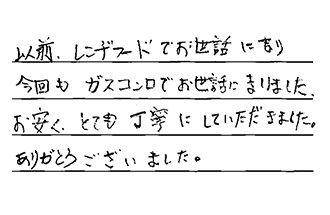 以前、レンジフードでお世話になり
今回も ガスコンロでお世話になりました、
お安く、とても 丁寧 にしていただきました。
ありがとうございました。